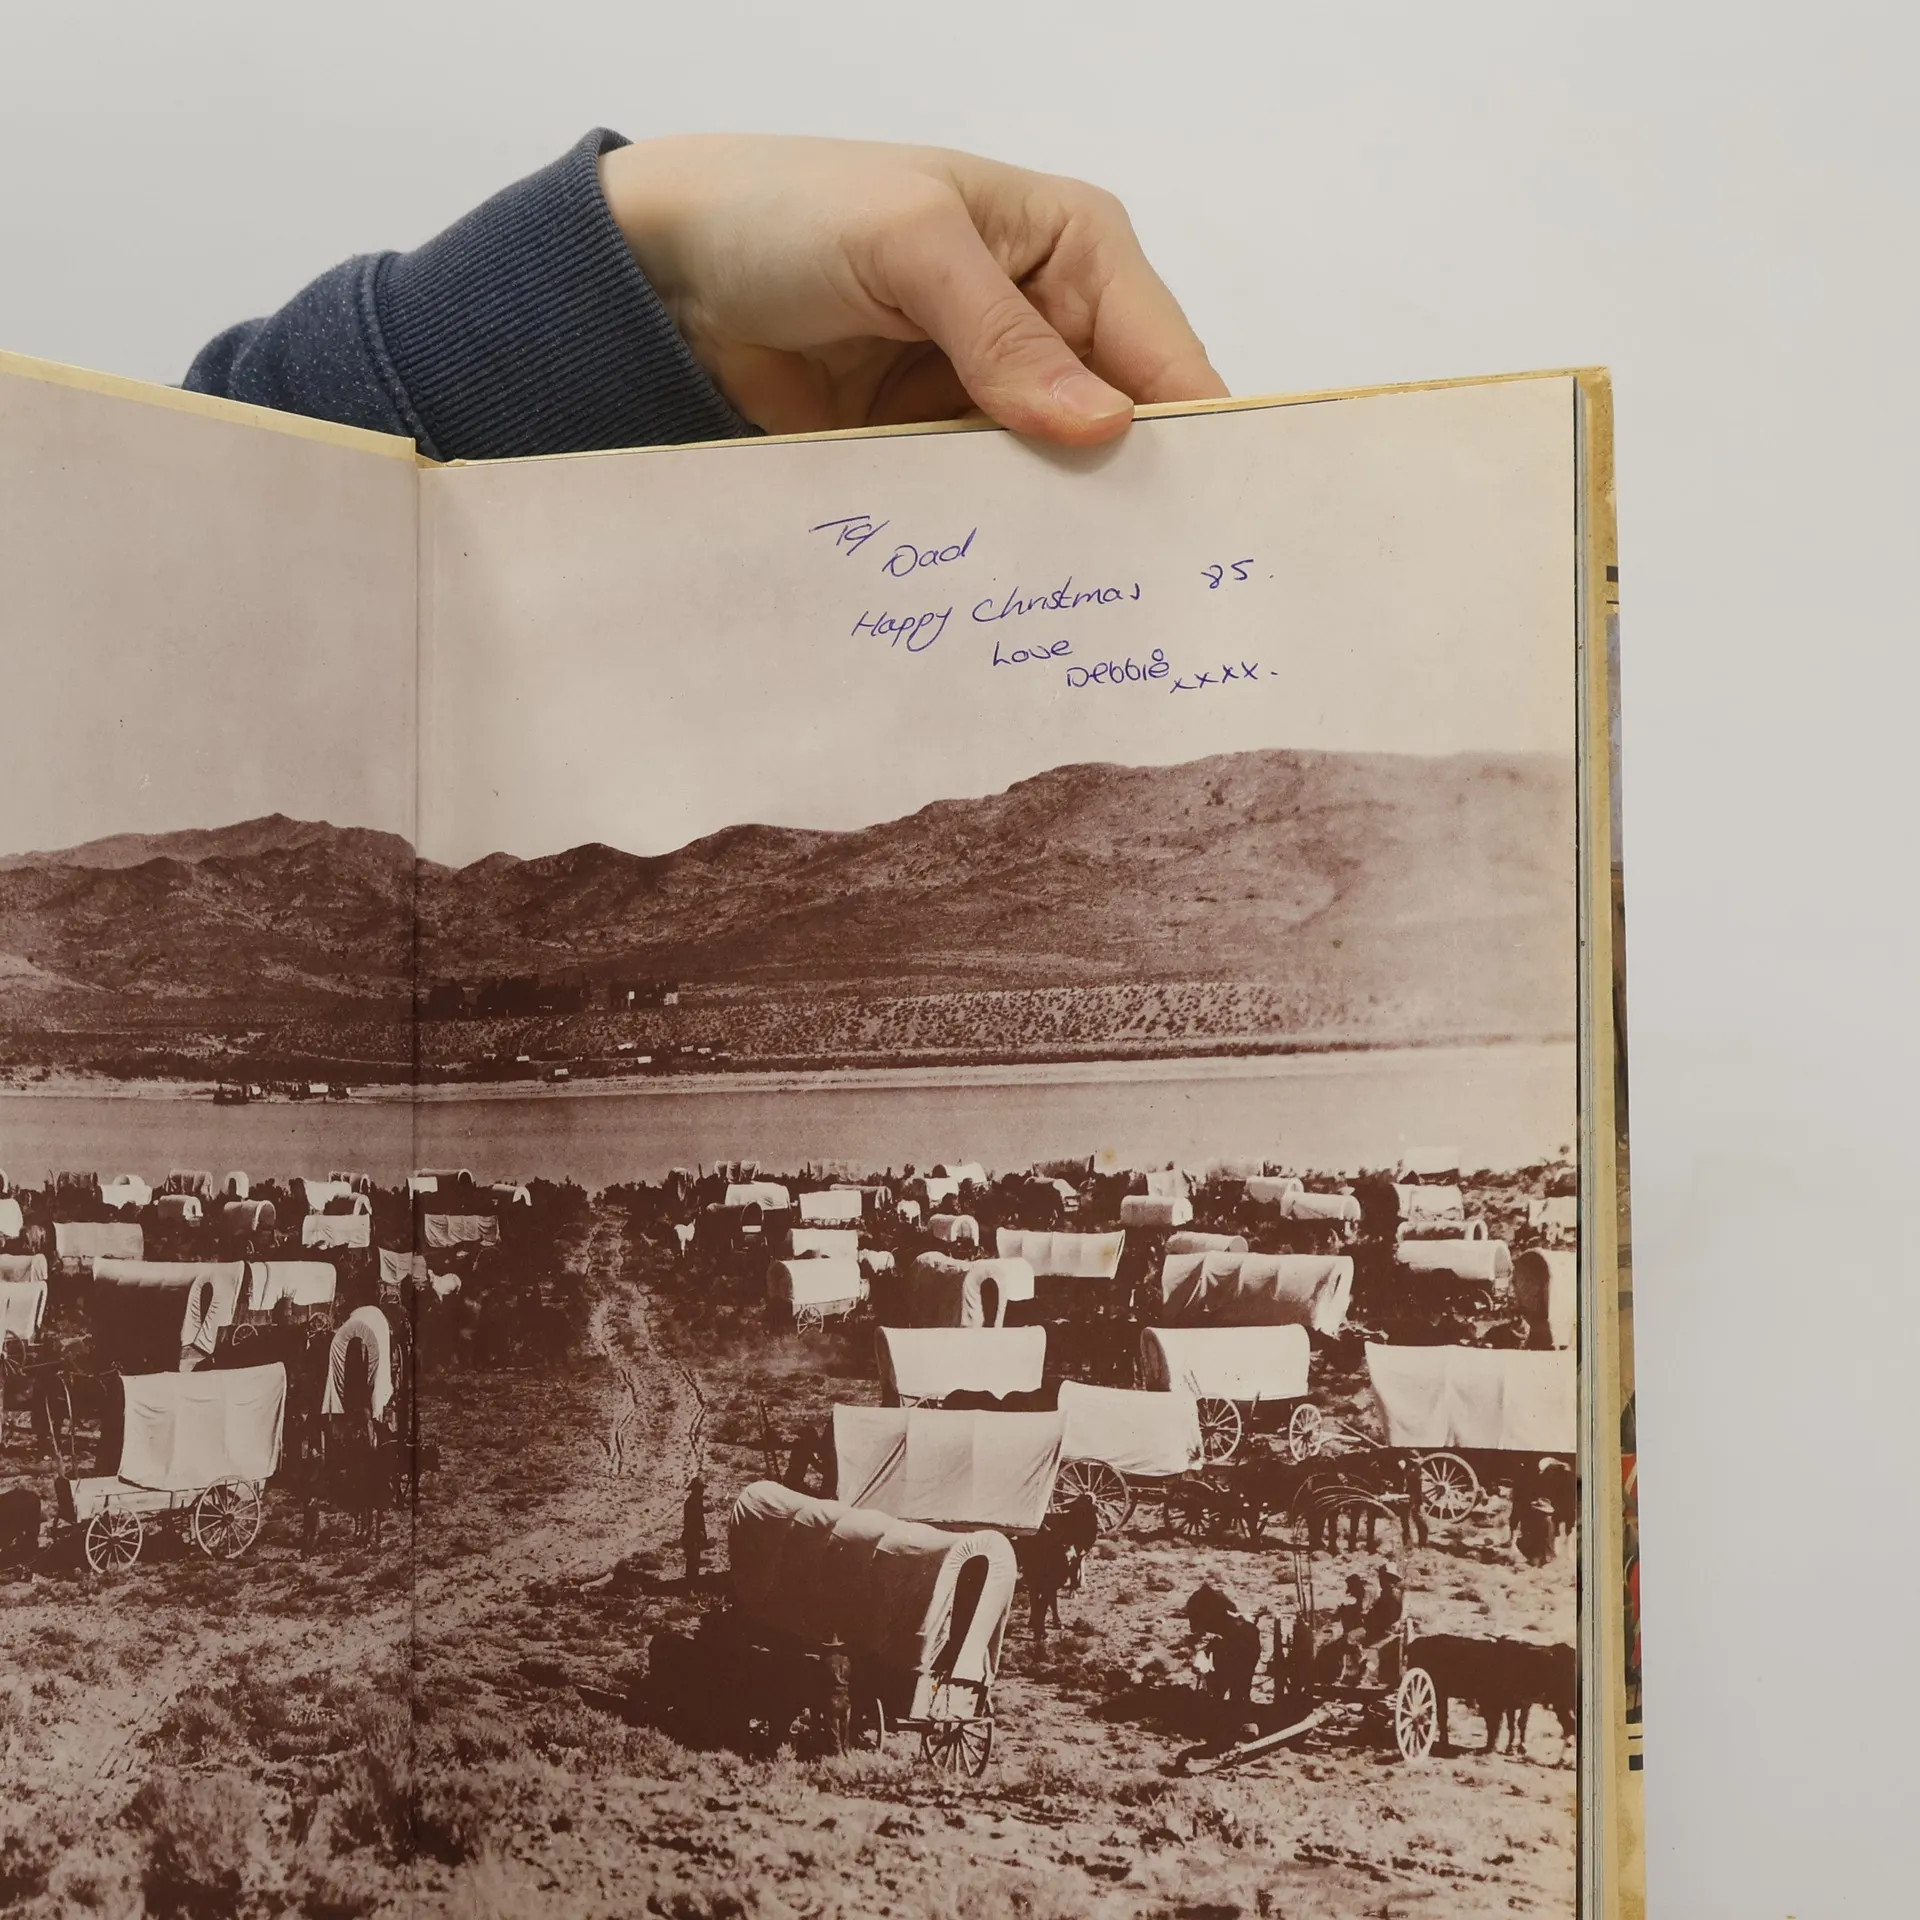 To/
Dad
Happy Christmas 85.
Love
Debbie xxxx.